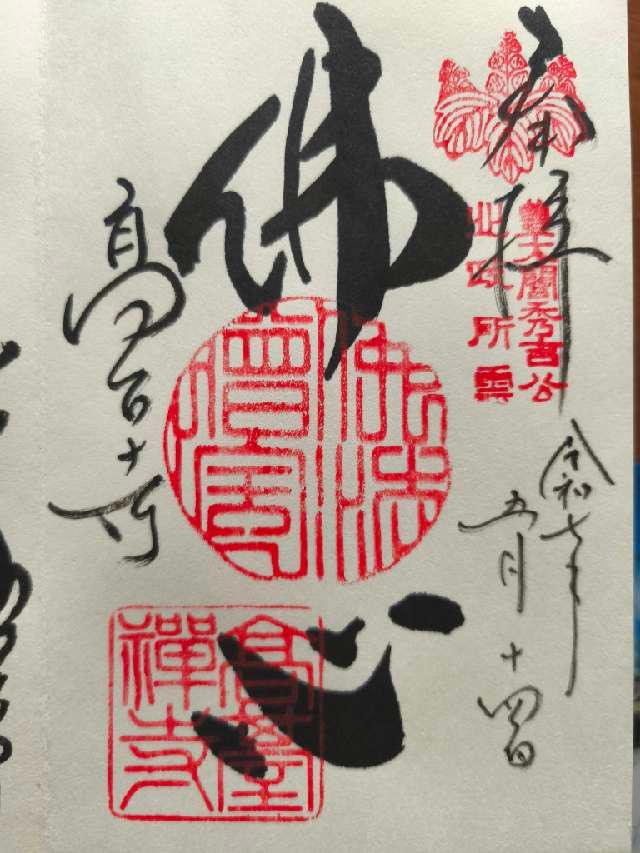 奉拝
豊太閤秀吉公
北政所霊
令和七年
五月十四日
佛心
佛法僧寶
高台寺
高臺禅寺